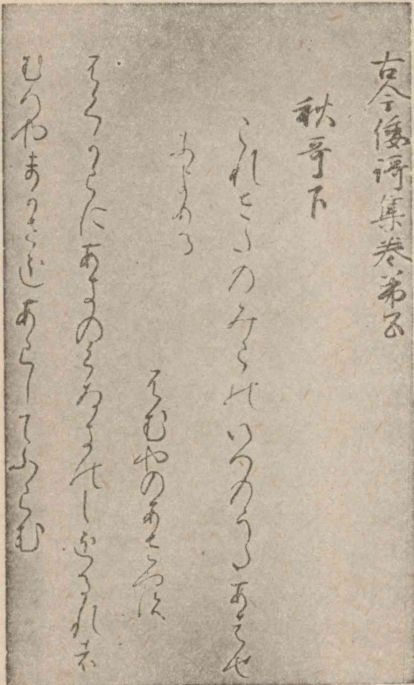 古今倭謌集巻第五
秋哥下
これさたのみこのいへのうたあはせ
のうた
ふむやのあさやす
ふくからにあきのくさきのしをるれは
むへやまかせをあらしてふらむ